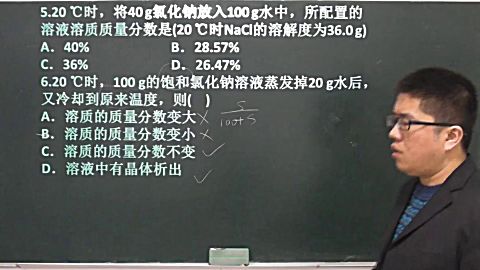 5.20 ℃时，将40 g氯化钠放入100 g水中，所配置的
溶液溶质质量分数是(20 ℃时NaCl的溶解度为36.0 g)
A．40% B．28.57%
C．36% D．26.47%
6.20 ℃时，100 g的饱和氯化钠溶液蒸发掉20 g水后，
又冷却到原来温度，则( )
A．溶质的质量分数变大 ×
B．溶质的质量分数变小 ×
C．溶质的质量分数不变 ✓
D．溶液中有晶体析出 ✓
S
100+S